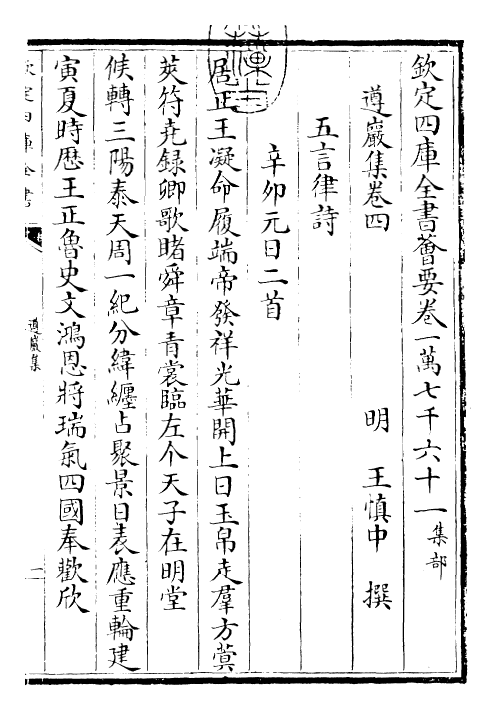 欽定四庫全書薈要卷一萬七千六十一集部
遵巖集卷四
明 王慎中 撰
五言律詩
辛卯元日二首
居正王凝命履端帝發祥光華開上日玉帛走羣方蓂
莢符堯録卿歌睹舜章青裳臨左个天子在明堂
候轉三陽泰天周一紀分緯纏占聚景日表應重輪建
寅夏時歴王正魯史文鴻恩將瑞氣四國奉歡欣
欽定四庫全書
遵巖集
一